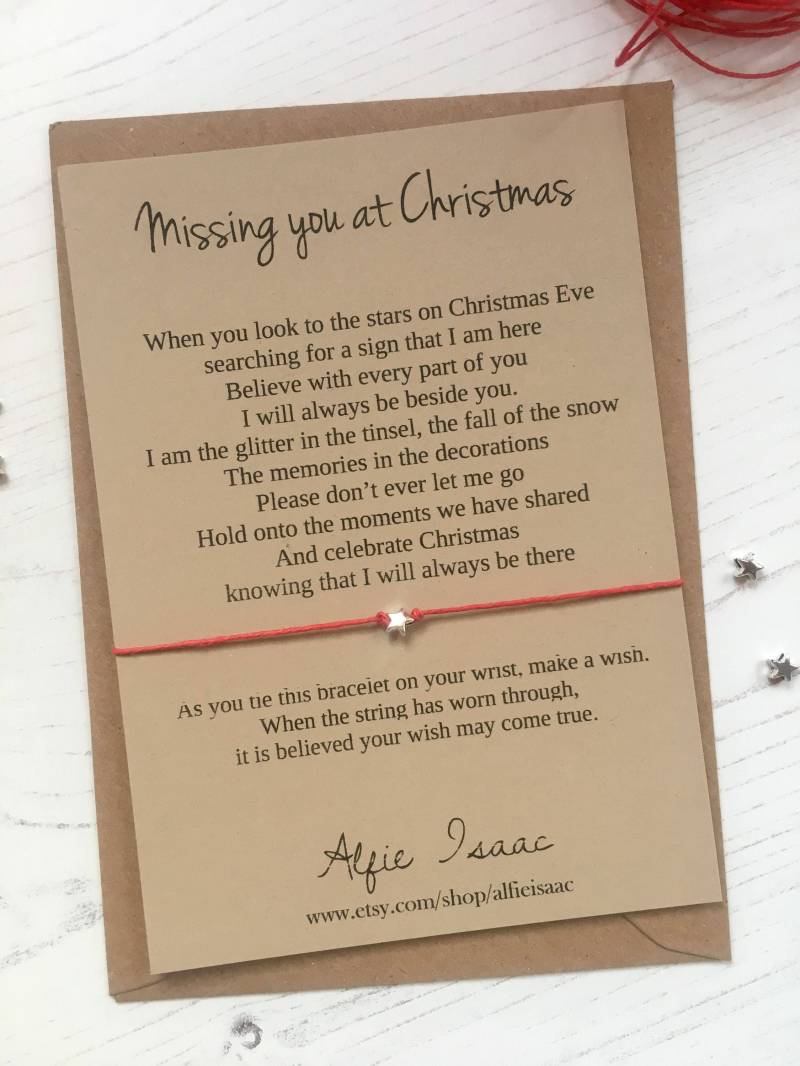 Missing you at Christmas
When you look to the stars on Christmas Eve
searching for a sign that I am here
Believe with every part of you
I will always be beside you.
I am the glitter in the tinsel, the fall of the snow
The memories in the decorations
Please don’t ever let me go
Hold onto the moments we have shared
And celebrate Christmas
knowing that I will always be there
As you tie this bracelet on your wrist, make a wish.
When the string has worn through,
it is believed your wish may come true.
Alfie Isaac
www.etsy.com/shop/alfieisaac